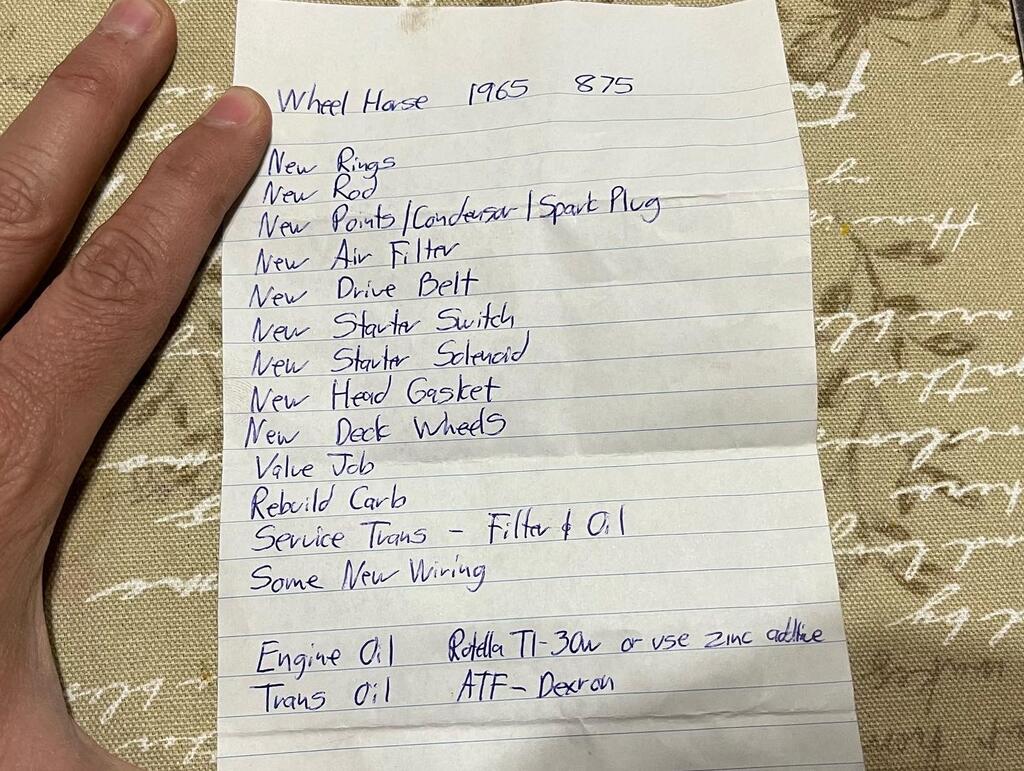 Wheel Horse 1965 875
New Rings
New Rod
New Points/Condensor/Spark Plug
New Air Filter
New Drive Belt
New Starter Switch
New Starter Solenoid
New Head Gasket
New Deck Wheels
Valve Job
Rebuild Carb
Service Trans - Filter & Oil
Some New Wiring
Engine Oil Rotella T1-30w or use zinc additive
Trans Oil ATF - Dexron